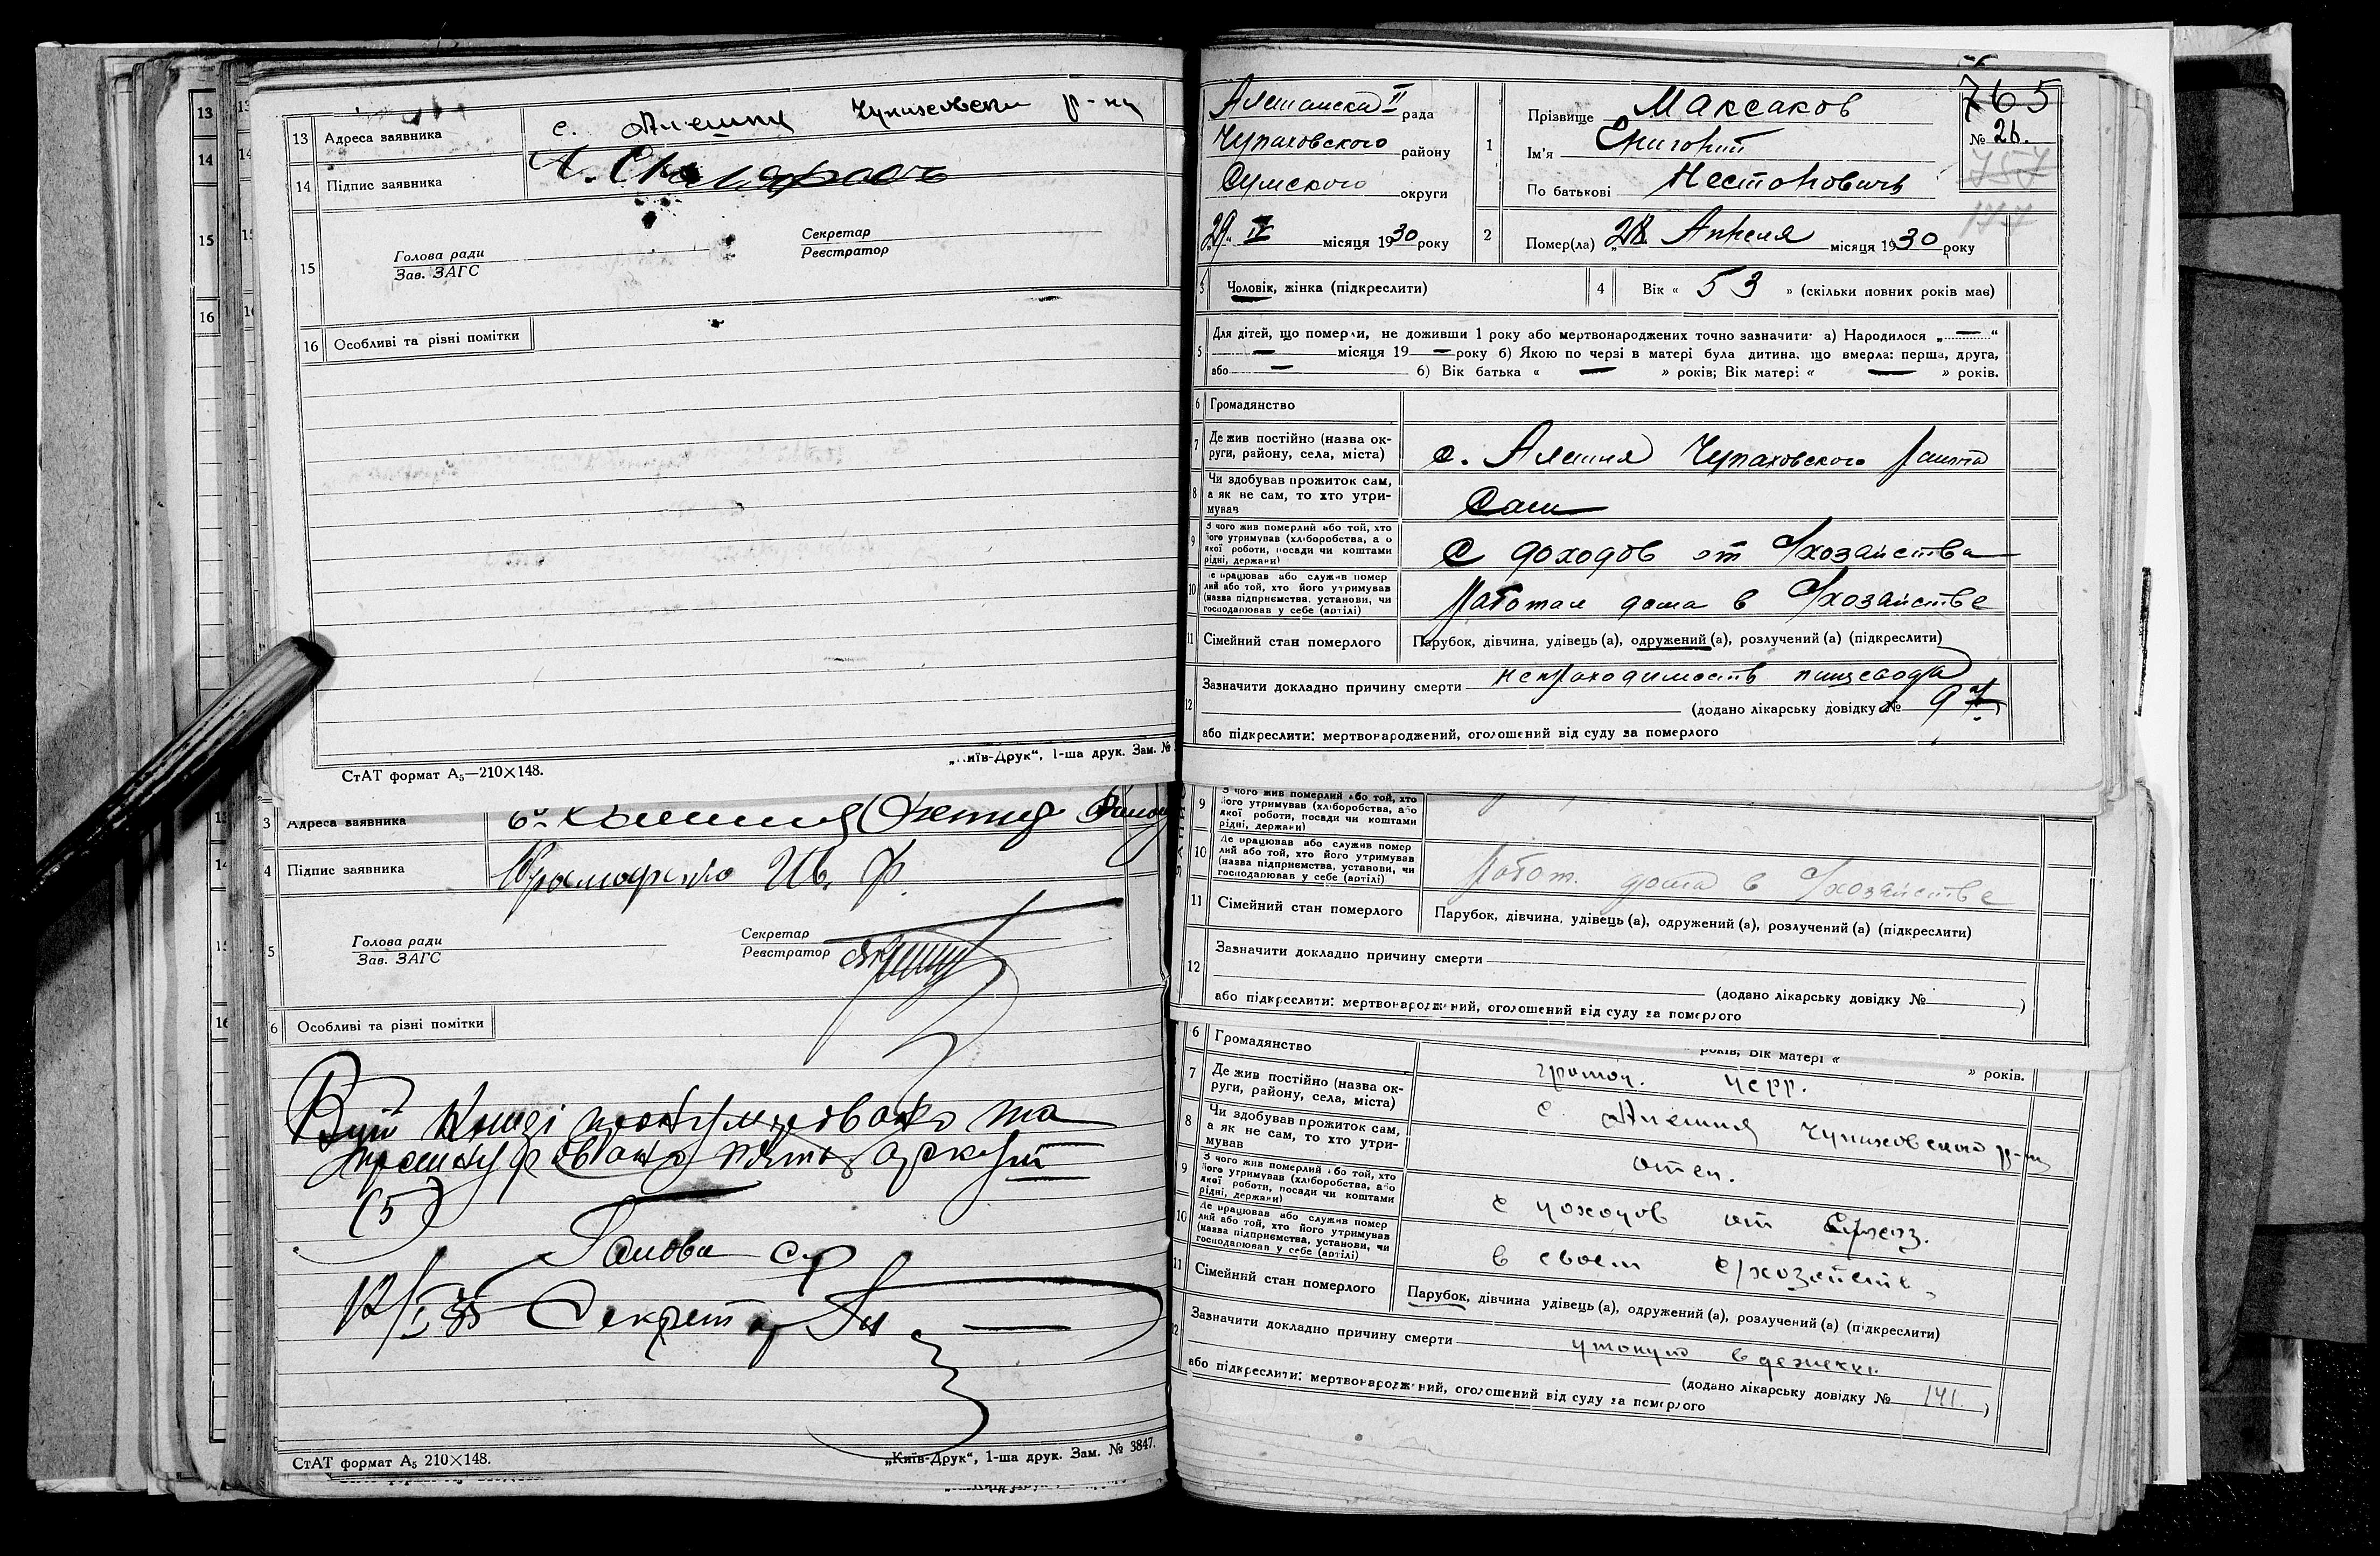 13 Адреса заявника с. Алешня Чупаховский р-ну
14 Підпис заявника
15 Голова ради Зав. ЗАГС Секретар Реєстратор
16 Особливі та різні помітки
СтАТ формат А₅—210×148. „Київ-Друк“, 1-ша друк. Зам. №
3 Адреса заявника
4 Підпис заявника Ив. Ф.
5 Голова ради Зав. ЗАГС Секретар Реєстратор
6 Особливі та різні помітки
пронумеровано та
прошнуровано пять аркуш
(5)
Голова с/р
Секретар
СтАТ формат А₅ 210×148. „Київ-Друк“, 1-ша друк. Зам. № 3847.
765
Алешанска II рада
Чупаховского району
Сумского округи
„29“ IV місяця 1930 року
№ 26.
757
1 Прізвище Максаков
Ім'я Григорий
По батькові Несторович
2 Помер(ла) „28 Апреля місяця 1930 року
3 Чоловік, жінка (підкреслити) 4 Вік « 53 » (скільки повних років має)
5 Для дітей, що померли, не доживши 1 року або мертвонароджених точно зазначити: а) Народилося „—“
— місяця 19— року б) Якою по черзі в матері була дитина, що вмерла: перша, друга,
або — 6) Вік батька « — » років; Вік матері « — » років.
6 Громадянство
7 Де жив постійно (назва округи, району, села, міста) с. Алешня Чупаховского района
8 Чи здобував прожиток сам, а як не сам, то хто утримував Сам
9 З чого жив померлий або той, хто його утримував (хліборобства, або якої роботи, посади чи коштами рідні, держави) С доходов от с/хозайства
10 Де працював або служив померлий або той, хто його утримував (назва підприємства, установи, чи господарював у себе (артілі) Работал дома в с/хозайстве
11 Сімейний стан померлого Парубок, дівчина, удівець (а), одружений (а), розлучений (а) (підкреслити)
12 Зазначити докладно причину смерти непроходимость пищевода
(додано лікарську довідку №
або підкреслити: мертвонароджений, оголошений від суду за померлого
9 З чого жив померлий або той, хто його утримував (хліборобства, або якої роботи, посади чи коштами рідні, держави)
10 Де працював або служив померлий або той, хто його утримував (назва підприємства, установи, чи господарював у себе (артілі) Работ. дома в с/хозяйстве
11 Сімейний стан померлого Парубок, дівчина, удівець (а), одружений (а), розлучений (а) (підкреслити)
12 Зазначити докладно причину смерти
(додано лікарську довідку № )
або підкреслити: мертвонароджений, оголошений від суду за померлого
років; Вік матері « » років.
6 Громадянство
7 Де жив постійно (назва округи, району, села, міста) с Алешня Чупаховского р-на
8 Чи здобував прожиток сам, а як не сам, то хто утримував отец.
9 З чого жив померлий або той, хто його утримував (хліборобства, або якої роботи, посади чи коштами рідні, держави) с доходов от с/хоз.
10 Де працював або служив померлий або той, хто його утримував (назва підприємства, установи, чи господарював у себе (артілі) в своем с/хозяйств
11 Сімейний стан померлого Парубок, дівчина удівець (а), одружений (а), розлучений (а) (підкреслити)
12 Зазначити докладно причину смерти утонул
(додано лікарську довідку № 141. )
або підкреслити: мертвонароджений, оголошений від суду за померлого